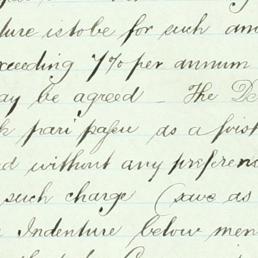 ture is to be for such am
xceeding 7% per annum
ay be agreed _ The De
k pari passu as a first
d without any preferen
such charge (save as
Indenture below men